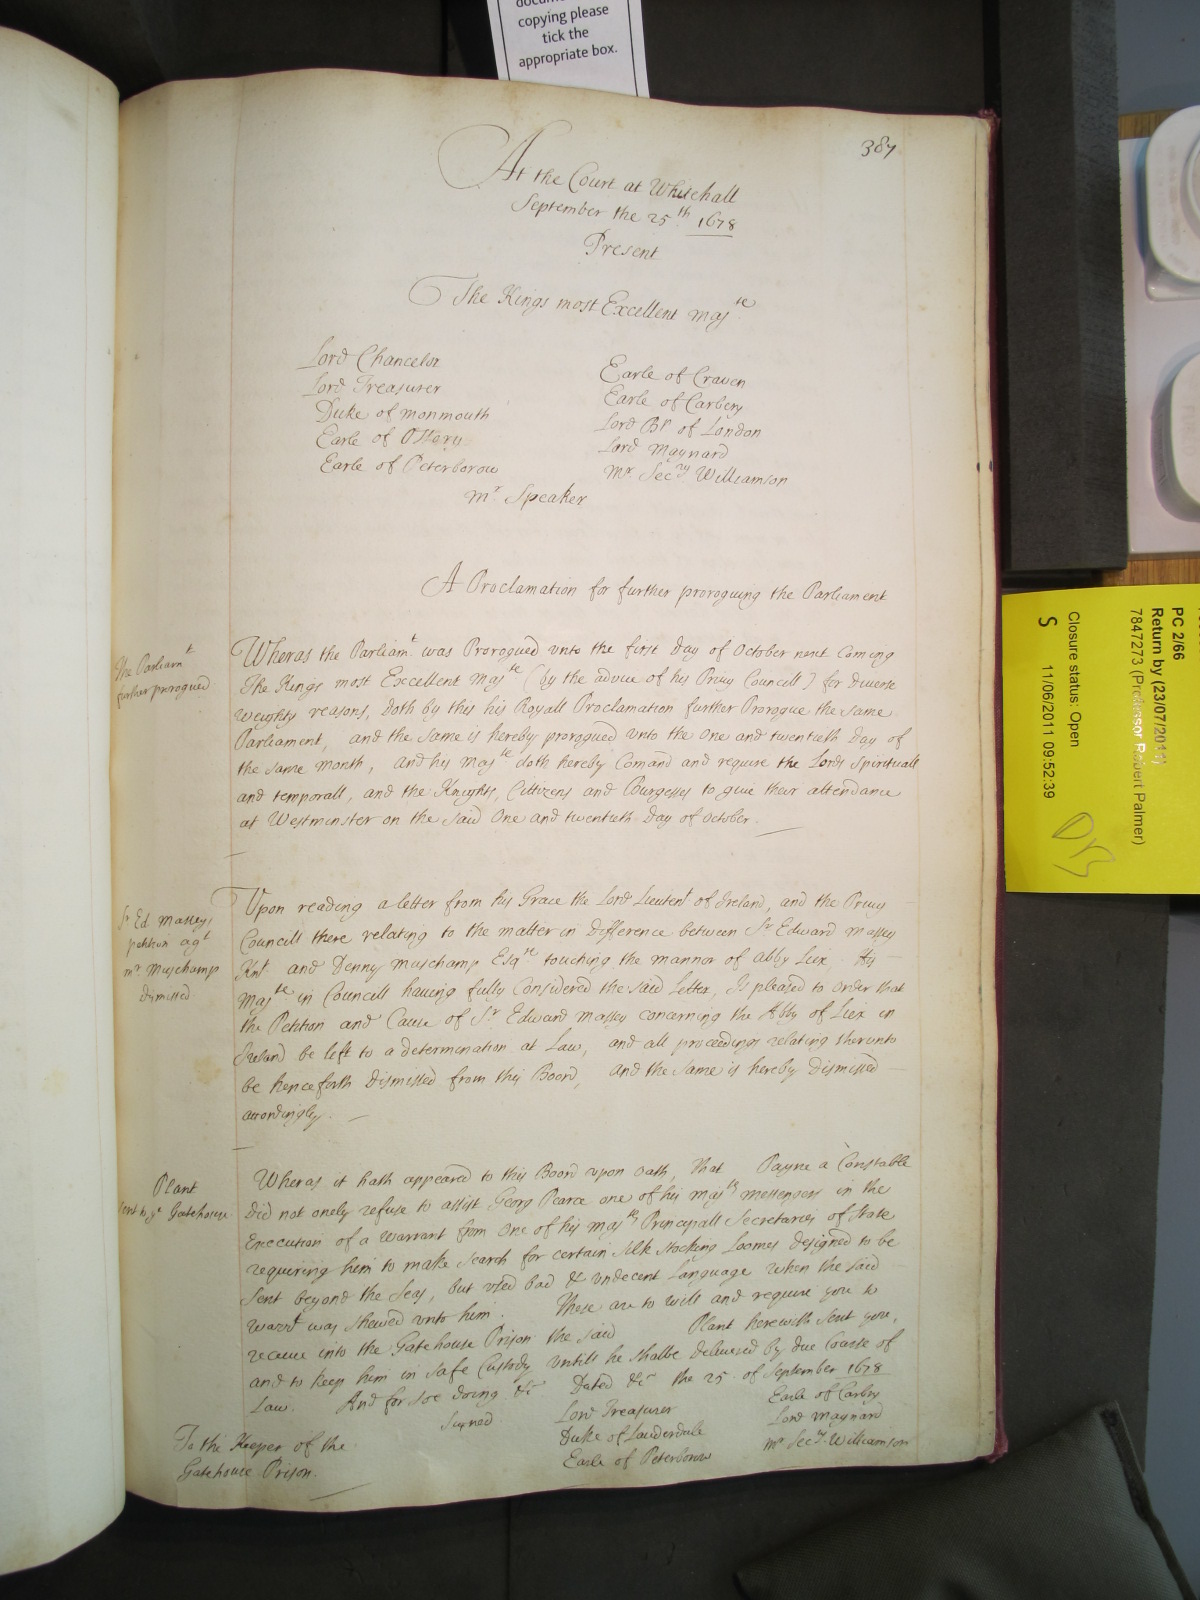 copying please
tick the
appropriate box.
387
At the Court at Whitehall
September the 25th 1678
Present
The Kings most Excellent Majte
Lord Chancelor
Lord Treasurer
Duke of Monmouth
Earle of Ossery
Earle of Peterborow
Earle of Craven
Earle of Carbery
Lord Bp of London
Lord Maynard
Mr Secry Williamson
Mr Speaker
A Proclamation for further proroguing the Parliament
The Parliamt
further prorogued
Wheras the Parliamt was Prorogued unto the first Day of October next Coming
The Kings most Excellent Majte (by the advice of his Privy Councill) for Diverse
weighty reasons, Doth by this his Royall Proclamation further Prorogue the same
Parliament, and the same is hereby prorogued unto the One and twentieth Day of
the same month, and his Majte doth hereby Comand and require the Lords Spirituall
and temporall, and the Knights, Cittizens and Burgesses to give their attendance
at Westminster on the said One and twentieth Day of October.
Sr Ed. Masseys
petition agt
Mr Muschamp
Dismissed
Upon reading a letter from his Grace the Lord Lieutent of Ireland, and the Privy
Councill there relating to the matter in Difference between Sr Edward Massey
Knt. and Denny Muschamp Esqre touching the mannor of Abby Liex. His
Majte in Councill having fully Considered the said Letter, Is pleased to Order that
the Petition and Cause of Sr Edward Massey concerning the Abby of Liex in
Ireland be left to a determination at Law, and all proceedings relating therunto
be henceforth Dismissed from this Board, and the same is hereby Dismissed
accordingly.
Plant
sent to ye Gatehouse
Wheras it hath appeared to this Board upon oath, that Payne a Constable
did not onely refuse to assist Georg Pearce one of his Majts messengers in the
Execution of a Warrant from One of his Majts Principall Secretaries of State
requiring him to make search for certain silk stocking Loomes designed to be
sent beyond the Seas, but used bad & undecent Language when the said
warrt was shewed unto him. These are to will and require you to
receive into the Gatehouse Prison the said Plant herewith sent you,
and to keep him in safe Custody untill he shalbe delivered by due Course of
Law. And for soe doing &c Dated &c the 25 of September 1678
Signed
Lord Treasurer
Duke of Lauderdale
Earle of Peterborow
Earle of Carbry
Lord Maynard
Mr Secry Williamson
To the Keeper of the
Gatehouse Prison.
PC 2/66
Return by (23/07/2011)
7847273 (Professor Robert Palmer)
Closure status: Open
S 11/06/2011 09:52:39